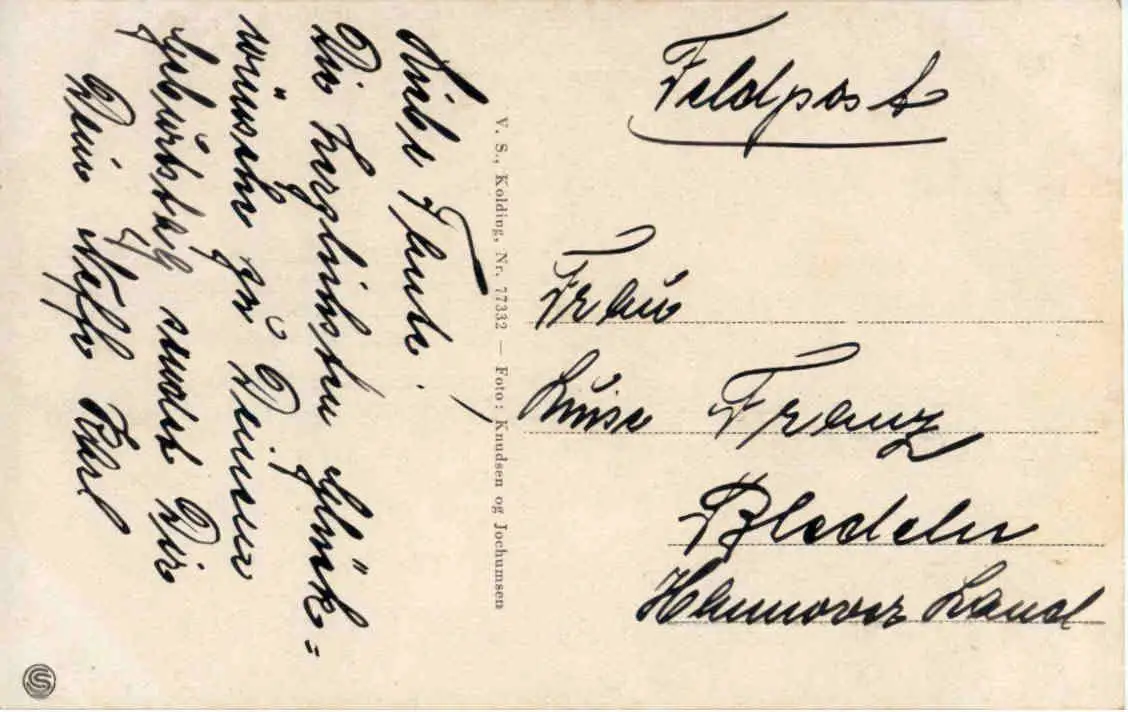 Feldpost
Frau
Luise Franz
Bledeln
Hannover Land
V. S., Kolding, Nr. 77332 — Foto: Knudsen og Jochumsen
Liebe Tante.
Die herzlichsten Glück=
wünsche zu Deinem
Geburtstag sendet Dir
Dein Neffe Karl